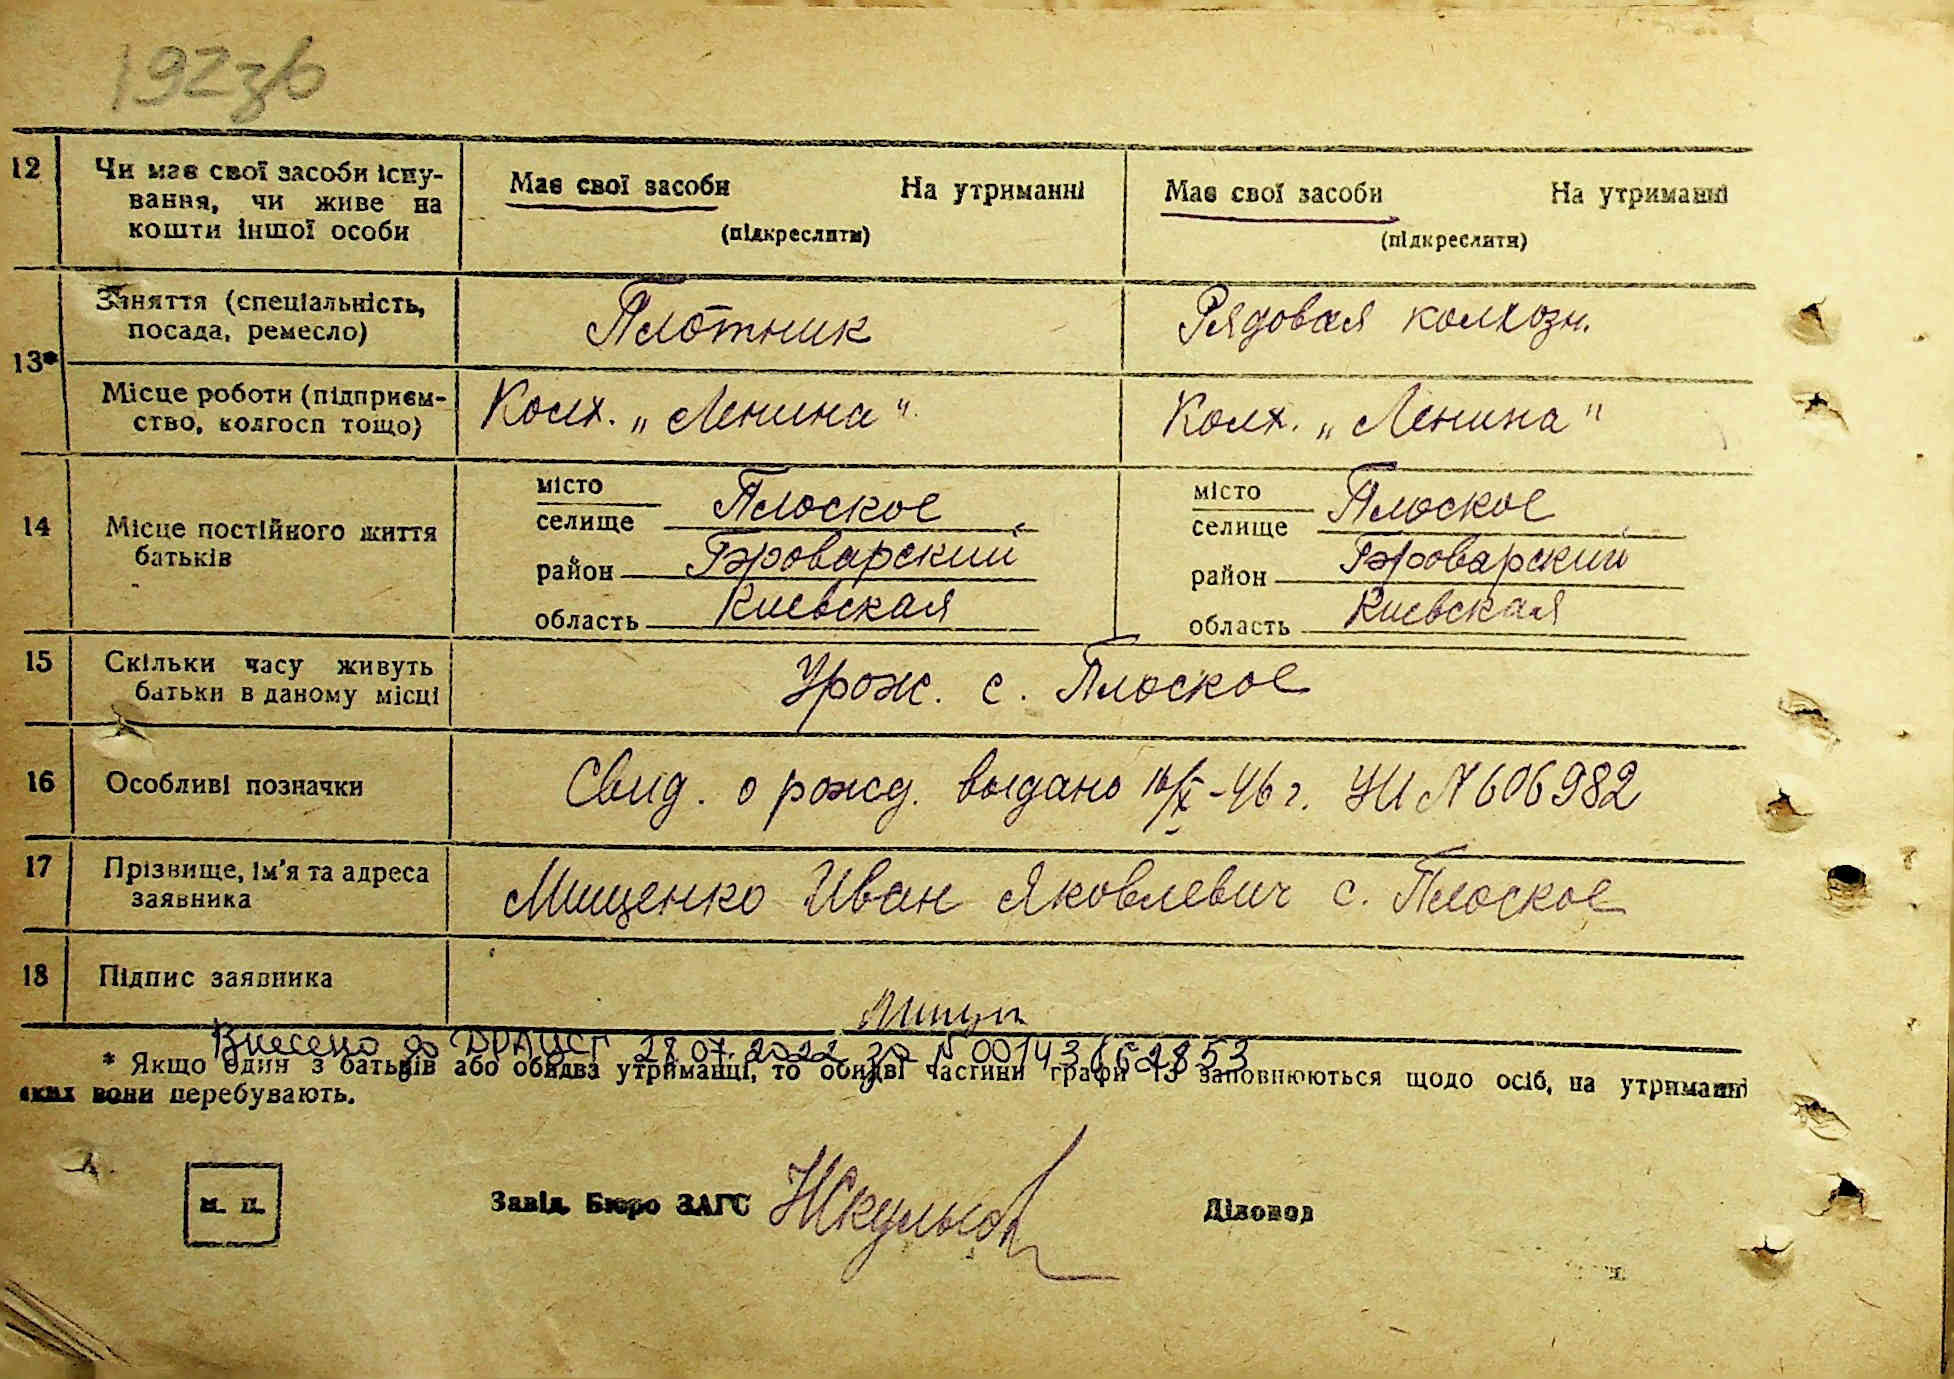 192зв
12 Чи має свої засоби існу-
вання, чи живе на
кошти іншої особи
Має свої засоби На утриманні
(підкреслити)
Має свої засоби На утриманні
(підкреслити)
13*
Заняття (спеціальність,
посада, ремесло)
Плотник
Рядовая колхозн.
Місце роботи (підприєм-
ство, колгосп тощо)
Колх. „Ленина"
Колх. „Ленина"
14 Місце постійного життя
батьків
місто
селище Плоское
район Броварский
область Киевская
місто
селище Плоское
район Броварский
область Киевская
15 Скільки часу живуть
батьки в даному місці
Урож. с. Плоское
16 Особливі позначки
Свид. о рожд. выдано 16/X-46 г. УИ N 606982
17 Прізвище, ім'я та адреса
заявника
Мищенко Иван Яковлевич с. Плоское
18 Підпис заявника
Внесено до ДРАЦСГ 28.07.2022 за N 00143
* Якщо один з батьків або обидва утриманці, то обидві частини графи 13 заповнюються щодо осіб, на утриманні
яких вони перебувають.
М. П.
Завід. Бюро ЗАГС
Діловод